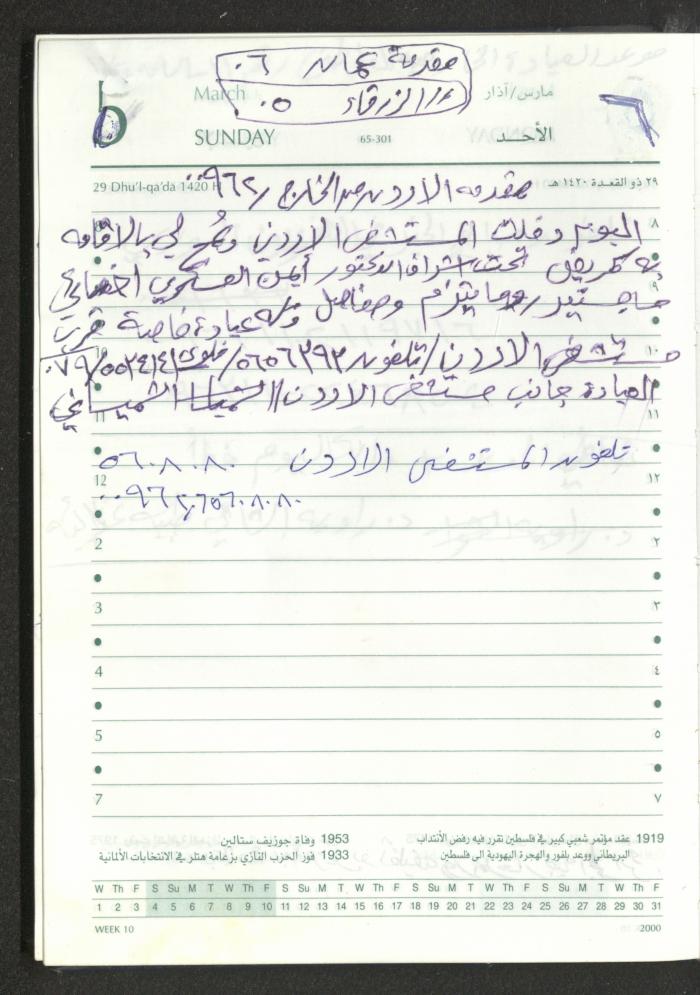 مقدمة عمان ٠٦
// الزرقاء ٠٥
March
مارس/آذار
5
SUNDAY
65-301
الأحـــد
29 Dhu'l-qa'da 1420 H
٢٩ ذو القعدة ١٤٢٠ هـ
مقدمه الاردن من الخارج ٠٠٩٦٢
اليوم دخلت المستشفى الاردن وسمح لي بالاقامه
به كمريض تحت اشراف الدكتور أيمن اخصائي
ماجستير روماتيزم ومفاصل وله عيادة خاصة قرب
مستشفى الاردن / تلفون ٥٦٥٦٣٩٣ / خلوي ٠٧٩/٥٥٣٤١٤١
العيادة جانب مستشفى الاردن // الشميساني
تلفون المستشفى الاردن ٥٦٠٨٠٨٠
٠٠٩٦٢٦٥٦٠٨٠٨٠
٨
٩
10 ١٠
11 ١١
12 ١٢
2 ٢
3 ٣
4 ٤
5 ٥
7 ٧
1919 عقد مؤتمر شعبي كبير في فلسطين تقرر فيه رفض الأنتداب
البريطاني ووعد بلفور والهجرة اليهودية الى فلسطين
1953 وفاة جوزيف ستالين
1933 فوز الحزب النازي بزعامة هتلر في الانتخابات الألمانية
W Th F S Su M T W Th F S Su M T W Th F S Su M T W Th F S Su M T W Th F
1 2 3 4 5 6 7 8 9 10 11 12 13 14 15 16 17 18 19 20 21 22 23 24 25 26 27 28 29 30 31
WEEK 10
2000